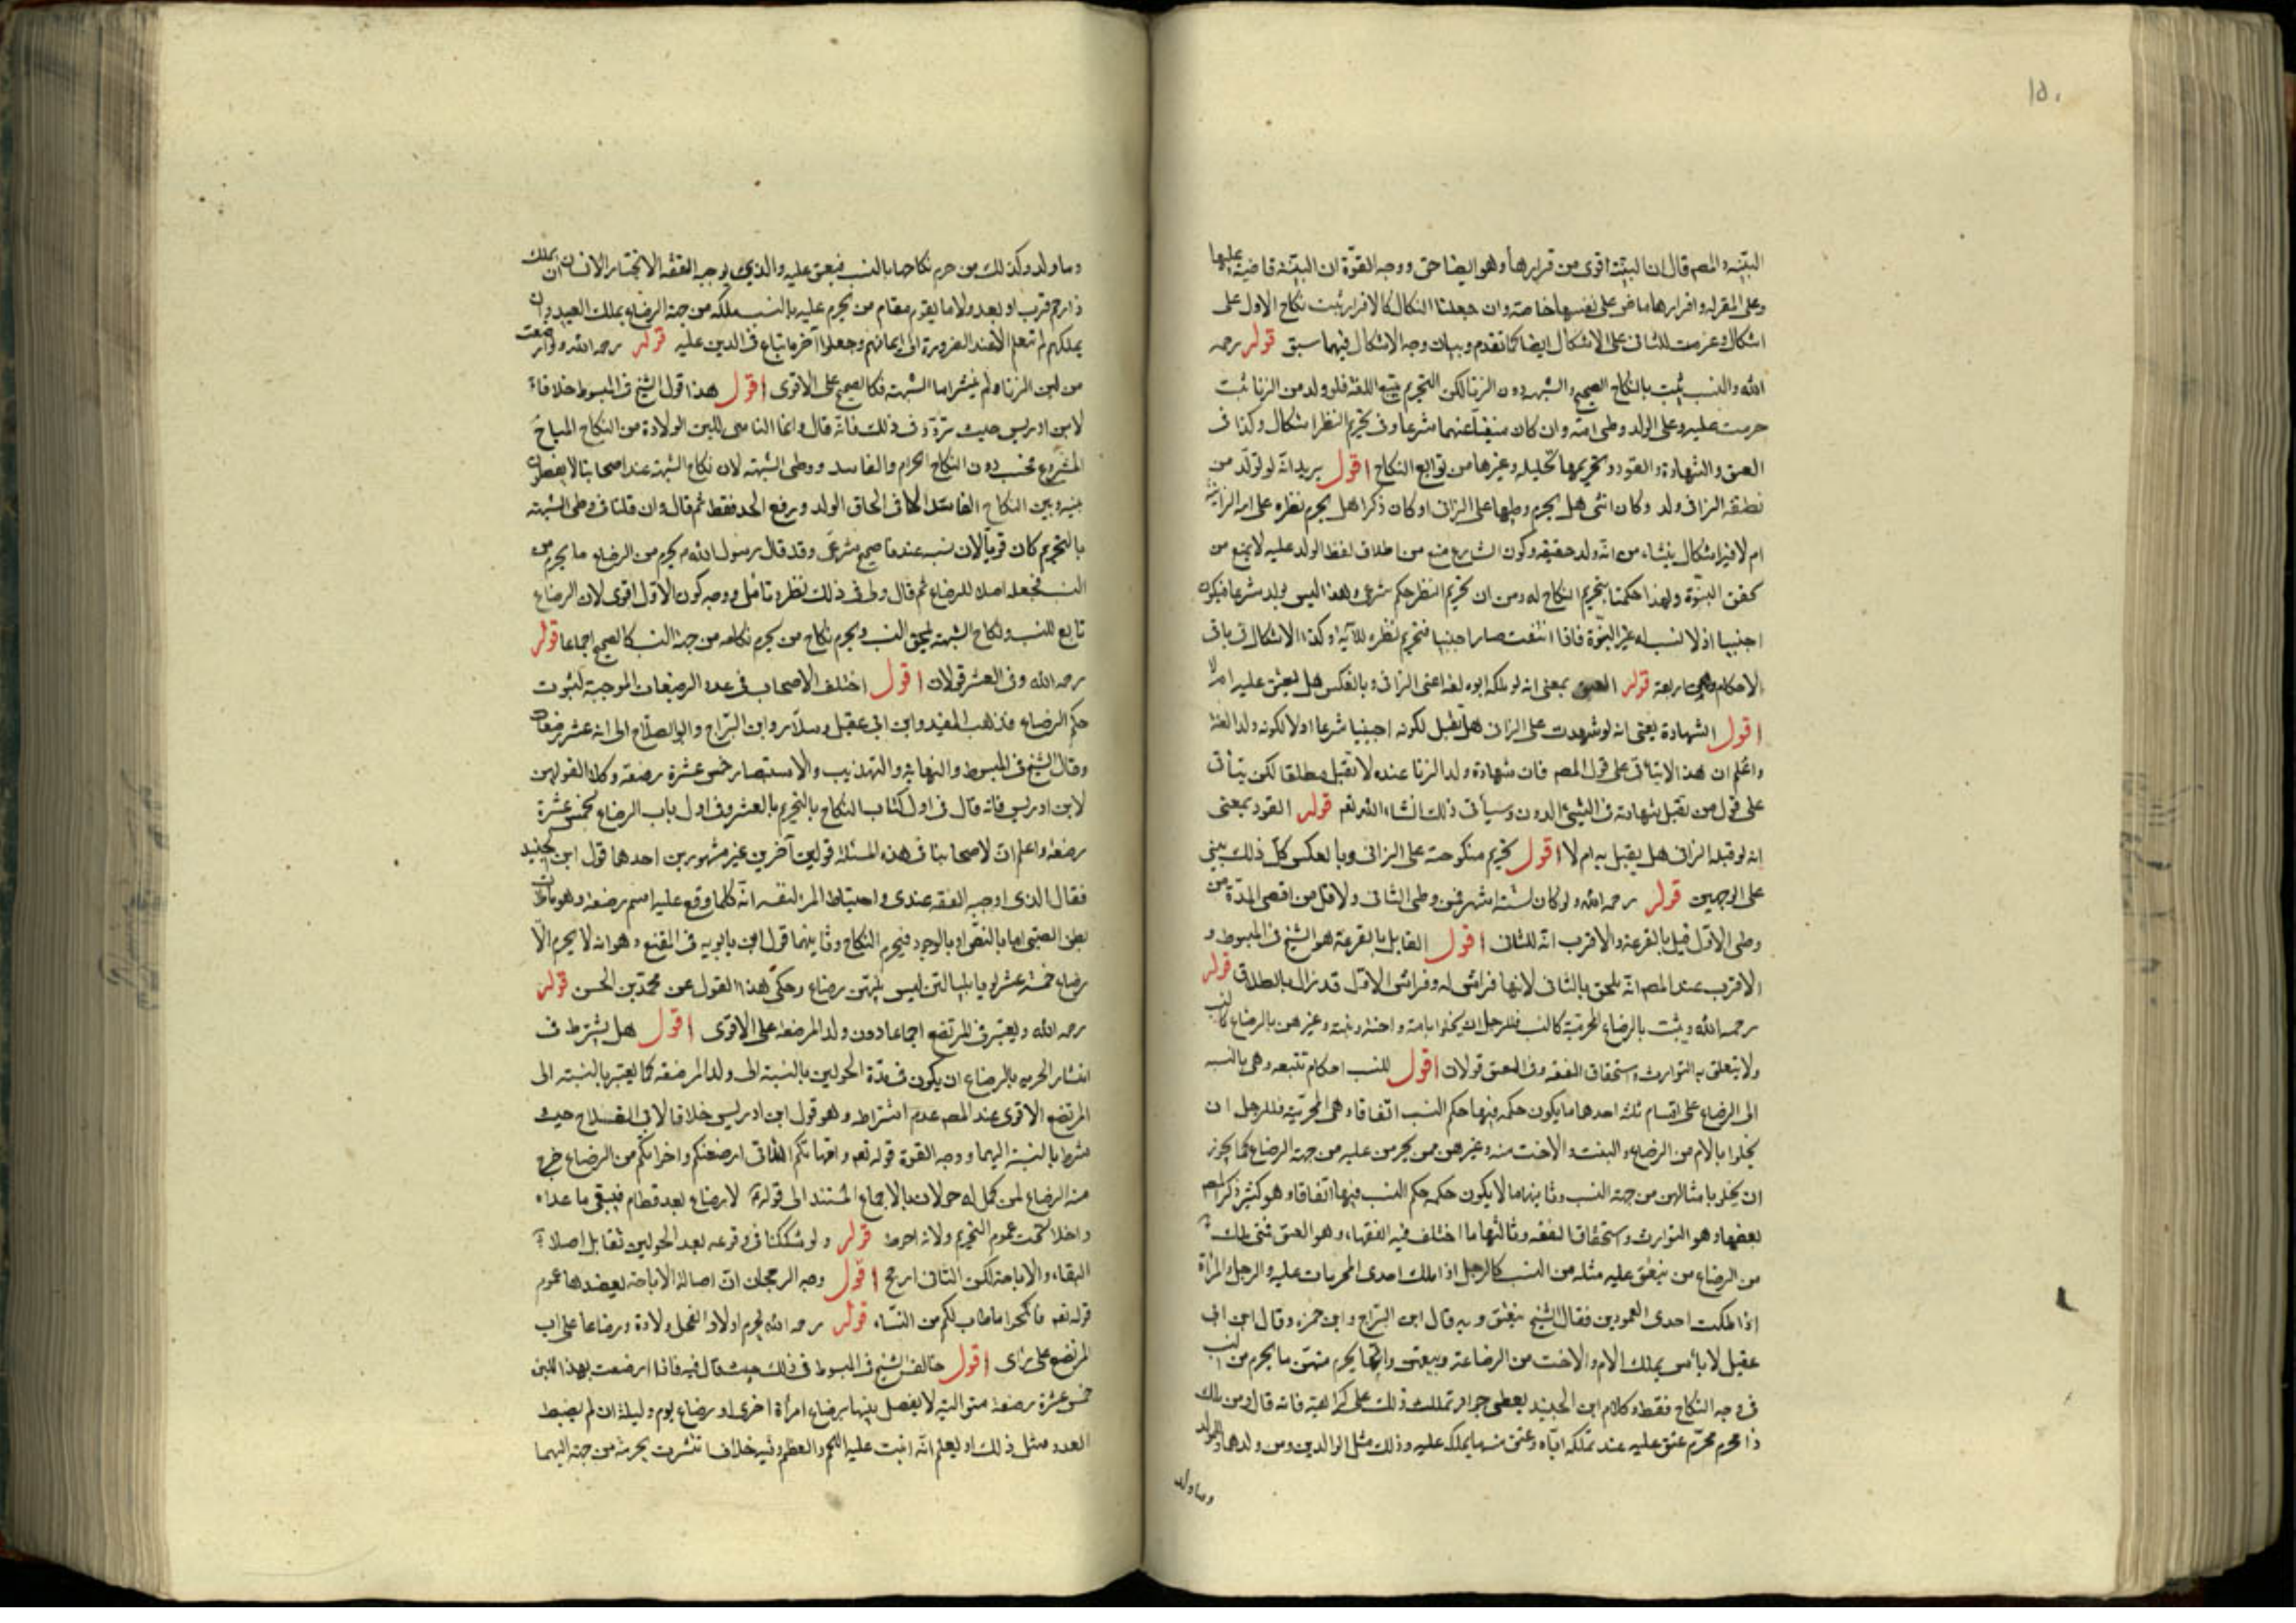 ١٥٠
البيّنه والمصم قال ان البيّنة اقوى من قرارها وهو ايضا حق ووجه القوّة ان البيّنة قاضية عليها
وعلى المقر له واقرارها ماض على نفسها خاصة وان جعلنا النكال كالاقرار ثبت نكاح الاول على
اشكال وغرمت للثانى على الاشكال ايضا كما تقدم وبيان وجه الاشكال فيما سبق قوله رحمه
الله والنسب يثبت بالنكاح الصحيح والشبهه دون الزنا لكن التحريم يتبع اللغة فلو ولد من الزنا بنت
حرمت عليه وعلى الولد وطى امه وان كان منفيا عنهما شرعا وفى تحريم النظر اشكال وكذا فى
العتق والشهادة والقود وتحريمها تحليله وغيرها من توابع النكاح اقول يريد انه لو تولّد من
نطفة الزانى ولد وكان انثى هل يحرم وطيها على الزانى او كان ذكرا هل يحرم نظره على امه الزانية
ام لا فيه اشكال ينشاء من انه ولد حقيقه وكون الشارع منع من اطلاق لفظ الولد عليه لا يمنع من
تحقق البنوّة ولهذا حكمنا بتحريم النكاح له ومن ان تحريم النظر حكم شرعى وهذا ليس بولد شرعا فيكون
اجنبيا اذ لا نسب له غير البنوّة فاذا انتفت صار اجنبيا فتحريم نظره للآية وكذا الاشكال فى باقى
الاحكام وهى اربعة قوله العتق بمعنى انه لو ملكه ابوه لغة اعنى الزانى وبالعكس هل يعتق عليه ام لا
اقول الشهادة يعنى انه لو شهدت على الزانى هل تقبل لكونه اجنبيا شرعا اولا لكونه ولدا لغة
واعلم ان هذا لا يتأتى على قول المصم فان شهادة ولد الزنا عنده لا تقبل مطلقا لكن يتأتى
على قول من تقبل شهادته فى الشيئ الدون وسيأتى ذلك انشاء الله تعم قوله القود بمعنى
انه لو قتله الزانى هل يقتل به ام لا اقول تحريم منكوحته على الزانى وبالعكس كل ذلك يبنى
على الوجهين قوله رحمه الله ولو كان لستة اشهر فمن وطى الثانى ولاقل من اقصى المدّة من
وطى الاوّل قيل بالقرعة والاقرب انّه للثانى اقول القايل بالقرعة هو الشيخ فى المبسوط و
الاقرب عند المصم انه يلحق بالثانى لانها فراش له وفراش الاوّل قد زال بالطلاق قوله
رحمه الله ويثبت بالرضاع المحرميّة كالنسب فللرجل ان يخلوا بامه واخته وبنته وغيرهن بالرضاع كالنسب
ولا يتعلق به التوارث واستحقاق النفقه وفى العتق قولان اقول للنسب احكام تتبعه وهى بالنسبه
الى الرضاع على اقسام ثلثه احدها ما يكون حكمه فيها حكم النسب اتفاقا وهى المحرميّة فللرجل ان
يخلوا بالام من الرضاع والبنت والاخت منه وغيرهن ممن يحرمن عليه من جهة الرضاع كما يجوز
ان يخلو بامثالهن من جهة النسب وثانيها ما لا يكون حكمه حكم النسب فيها اتفاقا وهو كثير ذكر المصم
بعضها وهو التوارث واستحقاق النفقه وثالثها ما اختلف فيه الفقهاء وهو العتق فمتى ملك
من الرضاع من ينعتق عليه مثله من النسب كالرجل اذا ملك احدى المحرمات عليه والرجل والمراة
اذا ملكت احدى العمودين فقال الشيخ ينعتق وبه قال ابن البرّاج وابن حمزه وقال ابن ابى
عقيل لا باس بملك الام والاخت من الرضاعة وبيعهن وانما يحرم منهنّ ما يحرم من النسب
فى وجه النكاح فقط وكلام ابن الجنيد يعطى جواز تملك ذلك على كراهية فانه قال ومن ملك
ذا محرم محرّم عتق عليه عند تملكه ايّاه وعتق منه ما يملك عليه وذلك مثل الوالدين ومن ولدهما والولد
وما ولد
وما ولد وكذلك من حرم نكاحها بالنسب فيعتق عليه والذى يوجبه الفقه الا يختار الانسان ان يملك
ذا رحم قرب او بعد ولا ما يقوم مقام من يحرم عليه بالنسب ملكه من جهة الرضاع بملك العبيد وان
يملكهم لم تبعهم الا عند الضرورة الى اثمانهم وجعلوا آخر ما تباع فى الدين عليه قوله رحمه الله ولو ارضعت
من لبن الزنا ولم ينشر اما الشبهة فكالصحيح على الاقوى اقول هذا قول الشيخ فى المبسوط خلافا
لابن ادريس حيث تردّد فى ذلك فانّه قال وانما التاسى للبن الولادة من النكاح المباح
المشروع فحسب دون النكاح الحرام والفاسد ووطى الشبهه لان نكاح الشبهة عند اصحابنا لا يفصلون
بينه وبين النكاح الفاسد الا فى الحاق الولد ورفع الحد فقط ثم قال وان قلنا فى وطى الشبهه
بالتحريم كان قويا لان نسبه عندنا صحيح شرعى وقد قال رسول الله م يحرم من الرضاع ما يحرم من
النسب فجعله اصلا للرضاع ثم قال ولى فى ذلك نظر وتامل ووجه كون الاوّل اقوى لان الرضاع
تابع للنسب ونكاح الشبهة يلحق النسب ويحرم نكاح من يحرم نكاحه من جهة النسب كالصحيح اجماعا قوله
رحمه الله وفى العشر قولان اقول اختلف الاصحاب فى عدد الرضعات الموجبة لثبوت
حكم الرضاع فذهب المفيد وابن ابى عقيل وسلّار وابن البرّاج وابو الصلاح الى انه عشر رضعات
وقال الشيخ فى المبسوط والنهاية والتهذيب والاستبصار خمس عشرة رضعة وكلا القولين
لابن ادريس فانه قال فى اول كتاب النكاح بالتحريم بالعشر وفى اول باب الرضاع بخمس عشرة
رضعة واعلم ان لاصحابنا فى هذه المسئلة قولين آخرين غير مشهورين احدها قول ابن الجنيد
فقال الذى اوجبه الفقه عندى واحتياط المرء لنفسه انّه كلما وقع عليه اسم رضعة وهو ملأت
بطن الصبى اما بالمصّ او بالوجور فيحرم النكاح وثانيهما قول ابن بابويه فى المقنع وهو انه لا يحرم الّا
رضاع خمسة عشر يوما بلياليهن ليس بينهن رضاع وحكى هذا القول عن محمّد بن الحسن قوله
رحمه الله ويعتبر فى المرتضع اجماعا دون ولد المرضعة على الاقوى اقول هل يشترط فى
انتشار الحرمه بالرضاع ان يكون فى مدّة الحولين بالنسبة الى ولد المرضعه كما يعتبر بالنسبة الى
المرتضع الاقوى عند المصم عدم اشتراطه وهو قول ابن ادريس خلافا لابى الصلاح حيث
شرط بالنسبة اليهما ووجه القوة قوله تعم وامهاتكم اللاتى ارضعنكم واخواتكم من الرضاع خرج
منه الرضاع لمن كمل له حولان بالاجماع المستند الى قوله م لا رضاع بعد فطام فيبقى ما عداه
داخلا تحت عموم التحريم ولانه احوط قوله ولو شككنا فى وقوعه بعد الحولين تقابل اصلا
البقاء والاباحة لكن الثانى ارجح اقول وجه الرجحان انّ اصالة الاباحة يعضدها عموم
قوله تعم فانكحوا ما طاب لكم من النساء قوله رحمه الله تحرم اولاد الفحل ولادة ورضاعا على اب
المرتضع على راى اقول خالف الشيخ فى المبسوط فى ذلك حيث قال فيه فاذا ارضعت بهذا اللبن
خمس عشرة رضعة متوالية لا يفصل بينها برضاع امرأة اخرى او رضاع يوم وليلة ان لم يضبط
العدد مثل ذلك او يعلم انّه انبت عليه اللحم والعظم وفيه خلاف انتشرت بحرمة من جهة اليهما